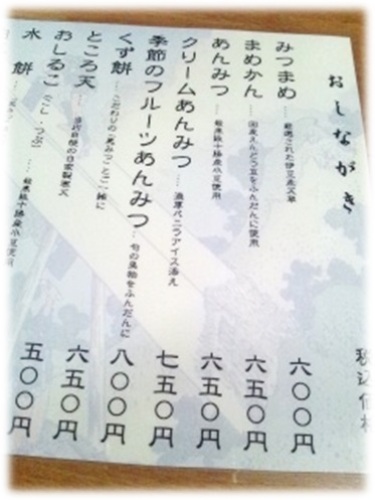 おしながき
税込価格
みつまめ …… 厳選された伊豆産天草 六〇〇円
まめかん …… 国産えんどう豆をふんだんに使用 六五〇円
あんみつ …… 最高級十勝産小豆使用 六五〇円
クリームあんみつ …… 濃厚バニラアイス添え 七五〇円
季節のフルーツあんみつ …… 旬の果物をふんだんに 八〇〇円
くず餅 …… こだわりの黒みつとご一緒に 六五〇円
ところ天 …… 当店自慢の自家製寒天 五〇〇円
おしるこ(こし・つぶ) …… 最高級十勝産小豆使用
水 餅